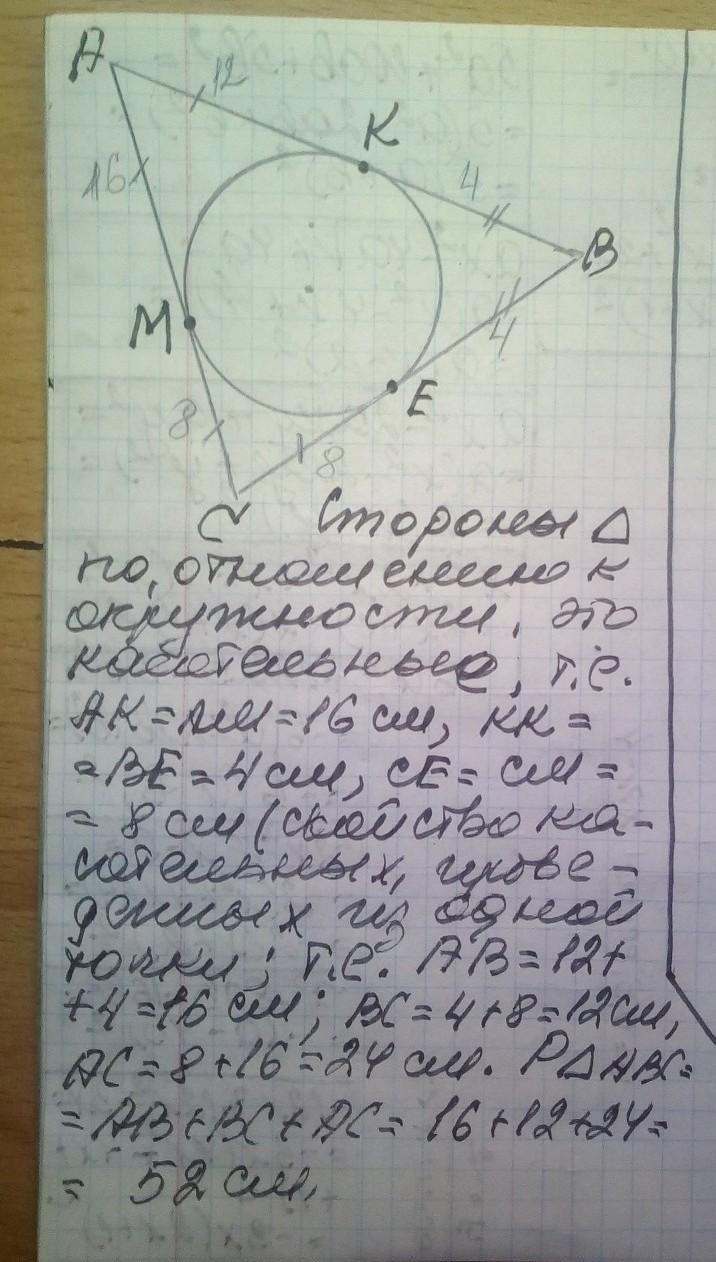 A
12
K
16
4
B
M
4
E
8
8
C
Стороны Δ
по, отношению к
окружности, это
касательные, т.е.
AK = AM = 16 см, KK =
= BE = 4 см, CE = CM =
= 8 см (свойство ка-
сательных, прове-
денных из одной
точки; т.е. AB = 12 +
+ 4 = 16 см; BC = 4 + 8 = 12 см,
AC = 8 + 16 = 24 см. PΔABC =
= AB + BC + AC = 16 + 12 + 24 =
= 52 см,